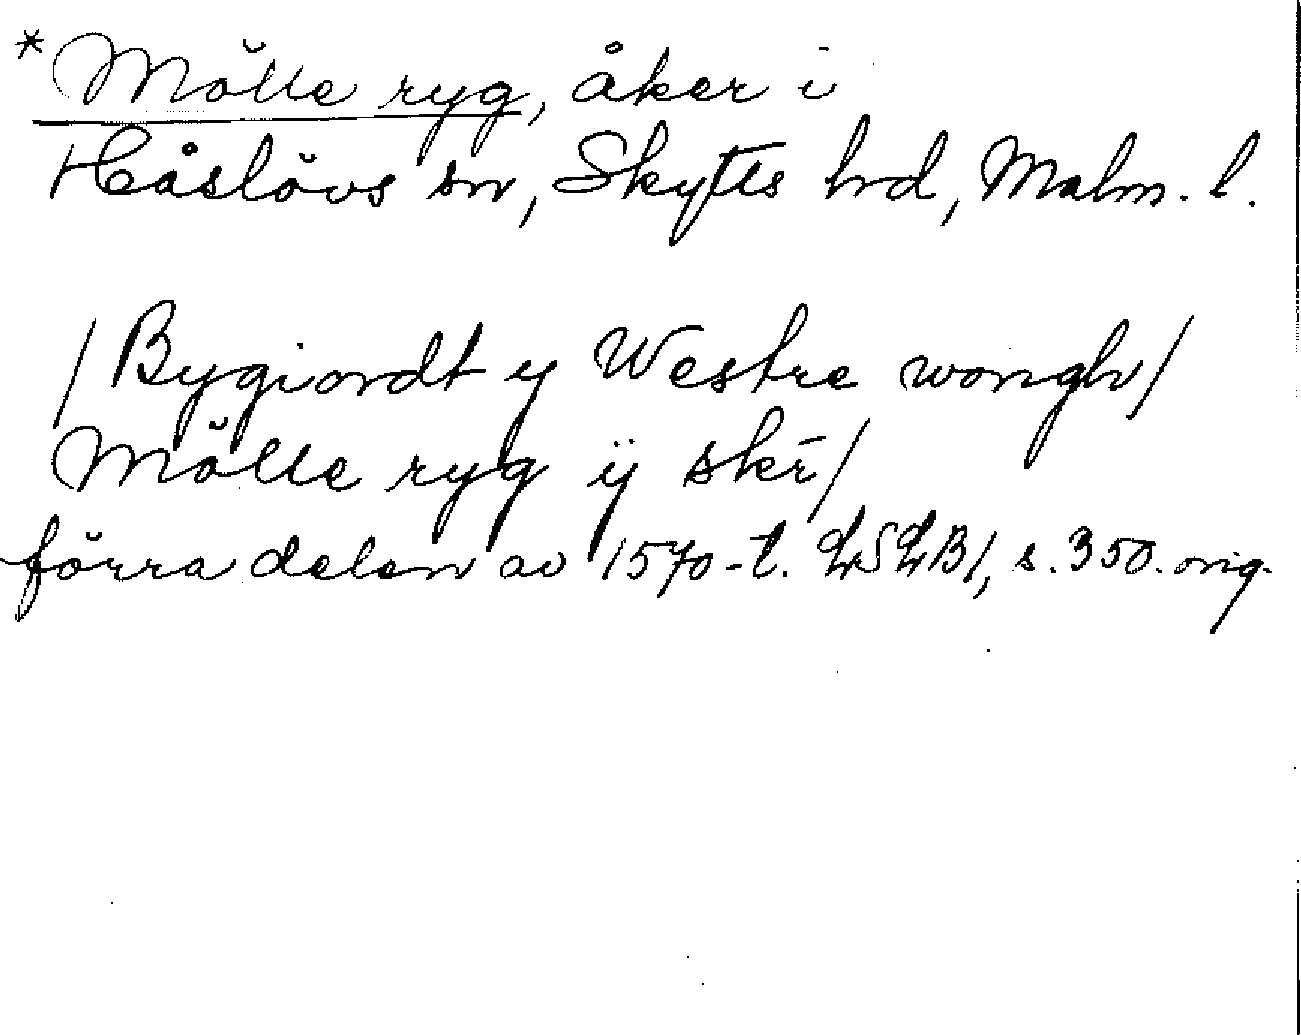 *Mölle ryg, åker i
Håslövs sn, Skytts hd, Malm. l.
/Bygiordt y Westre wongh/
Mölle ryg ÿ skr̄/
förra delen av 1570-t. LSLB1, s. 350. orig.